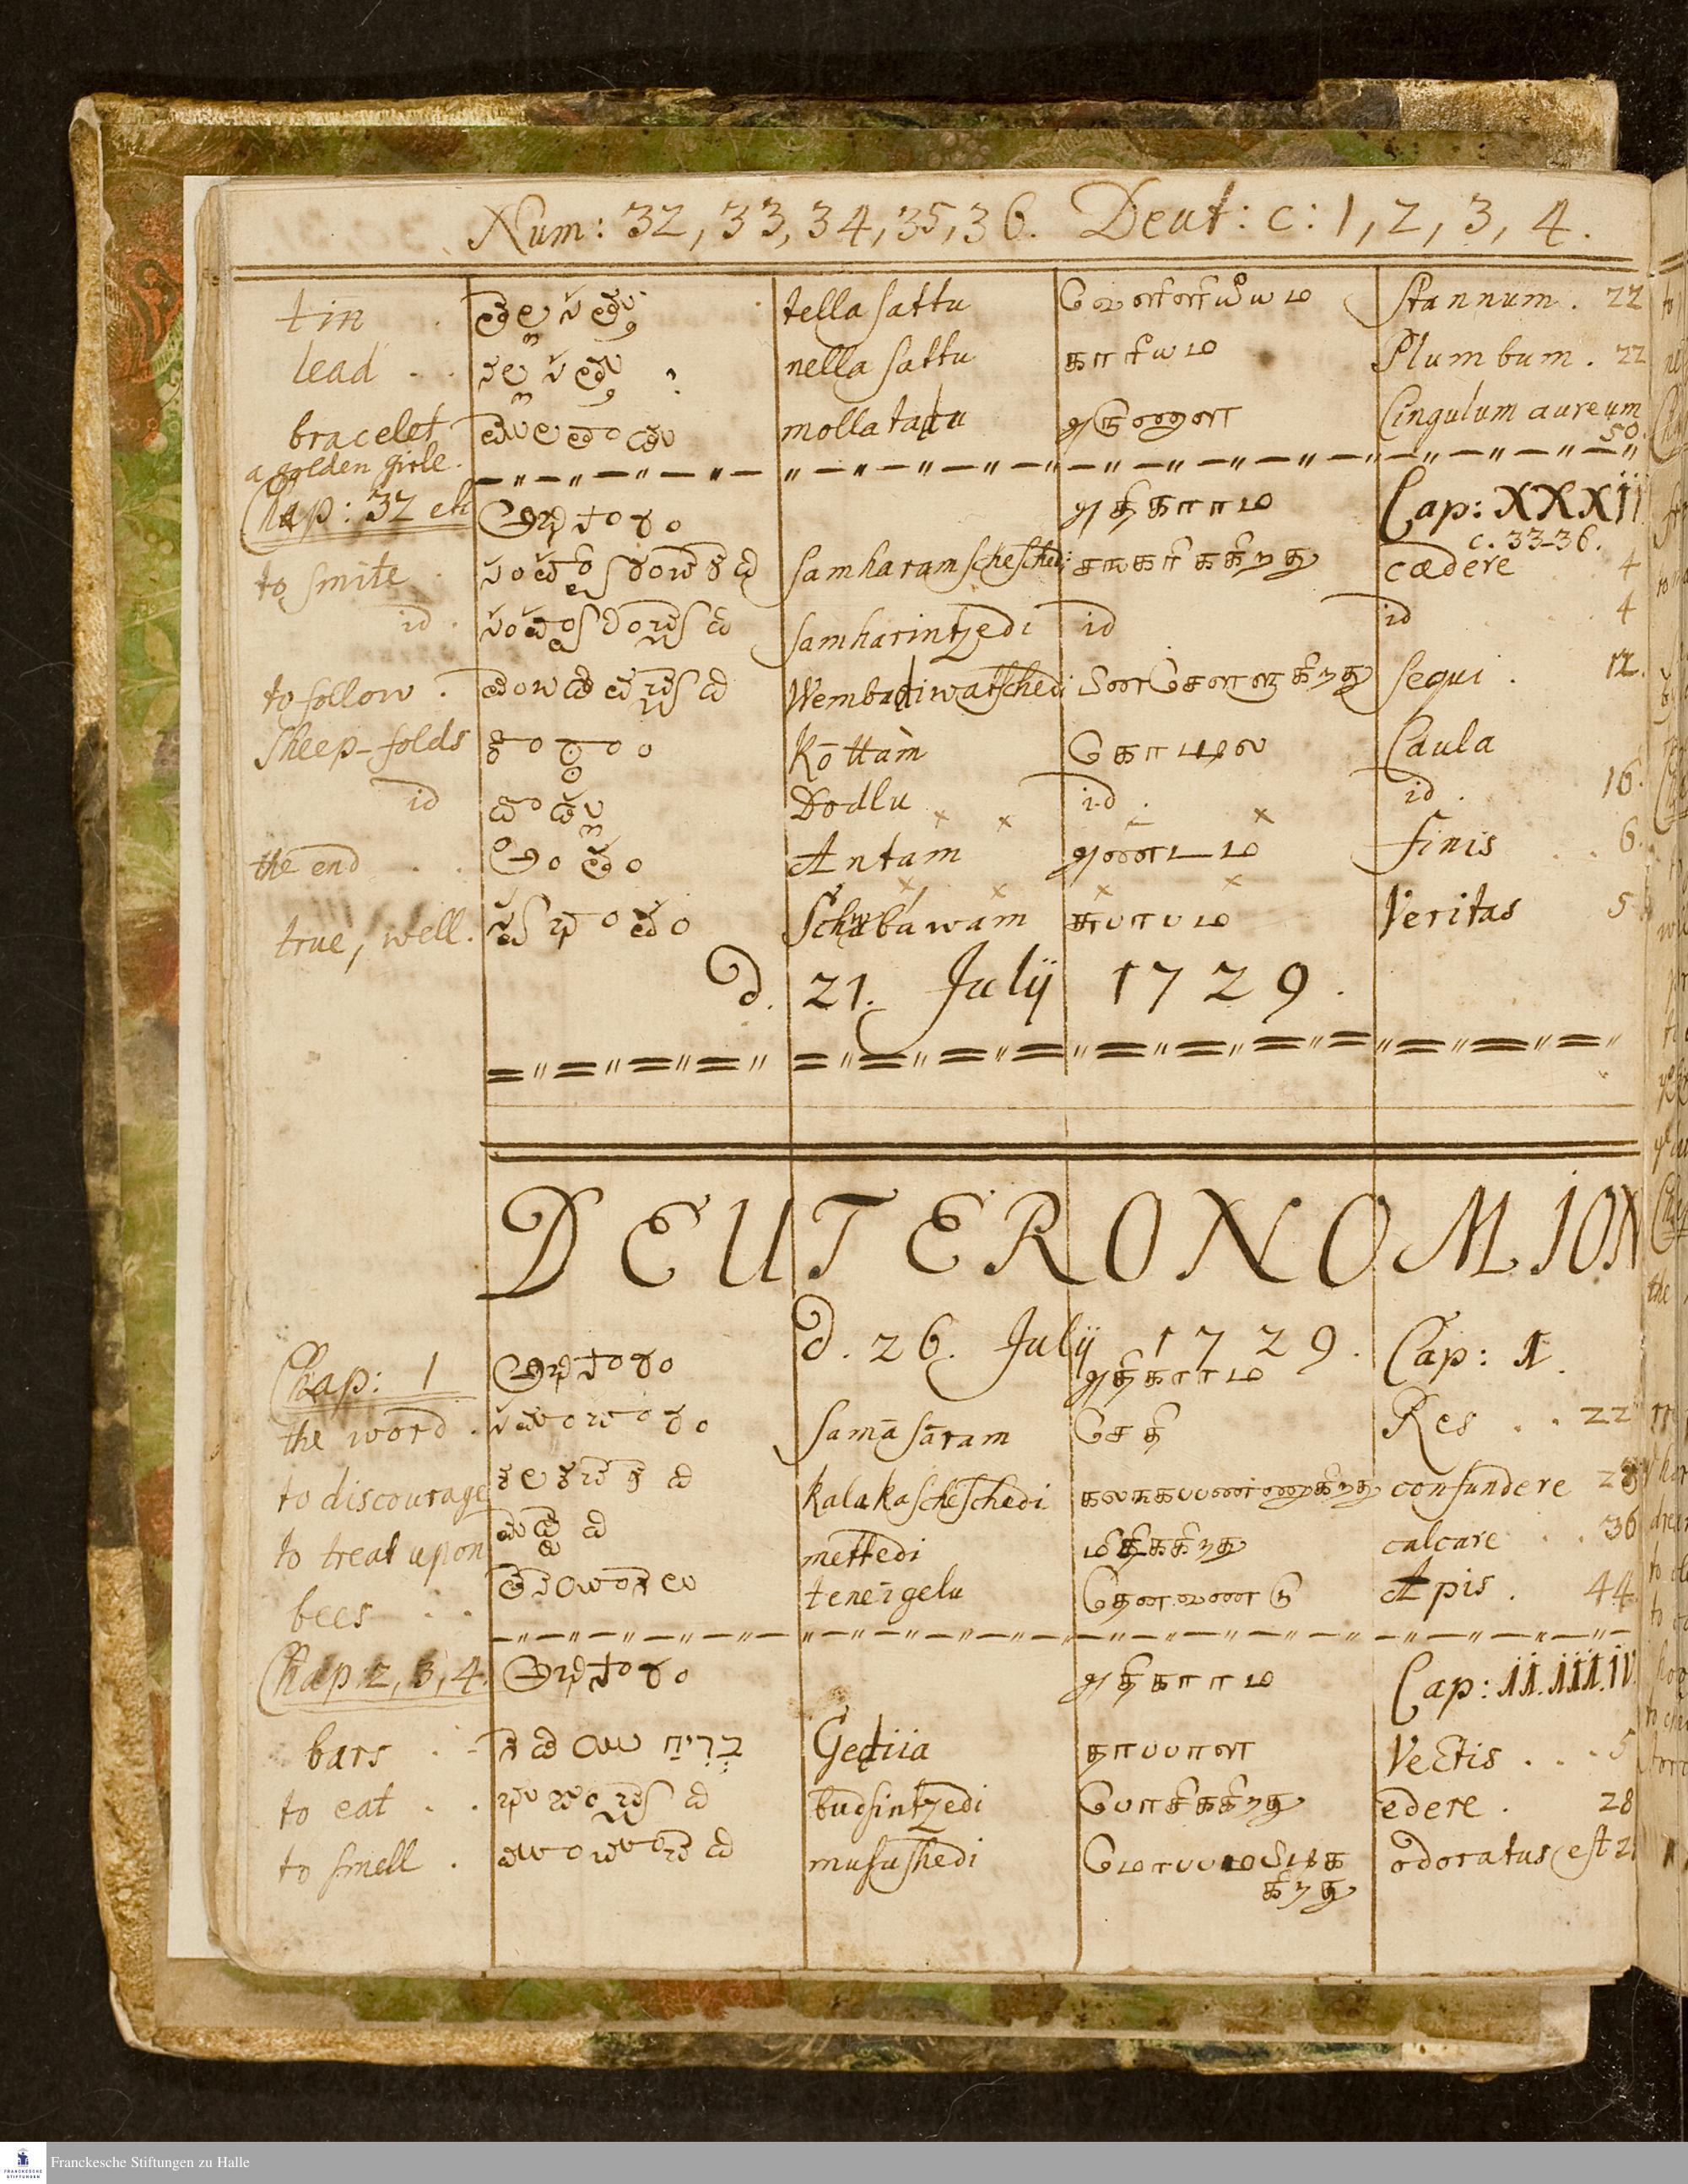 Num: 32, 33, 34, 35, 36. Deut: c: 1, 2, 3, 4.
tin తెల్ల సత్తు tella sattu வெள்ளீயம Stannum. 22
lead నల్ల సత్తు ? nella sattu காரீயம Plumbum. 22
bracelet మొలతాడు molla tadu அருணாள Cingulum aureum
a golden girle. 50.
Chap: 32 etc అధికారం அதிகாரம Cap: XXXII
c. 33-36.
to smite సంహారం samharam scheschedi சங்கரிககிறது cædere 4
id. samharintzedi id id 4
to follow. Wembadiwatschedi பின்செனறகிறது sequi. 12.
Sheep-folds కోటం Kōttam கொடடில Caula
id దొడ్లు Dodlu id. id. 16.
the end అంతం Antam அண்டம finis 6.
true, well. Schabáwam சுபாபம Veritas 5
d. 21. Julij 1729.
DEUTERONOMION
d. 26. Julij 1729.
Chap: 1 అధికారం அதிகாரம Cap: 1.
the word. సమాచారం samāsāram சேதி Res 22
to discourage కలకచేసేది kalakascheschedi கலங்கபபண்ணுகிறது confundere 28
to treat upon మెట్టేది mettedi மிதிககிறது calcare 36
bees తేనెయీగెలు teneigelu தேன்வண்டு Apis. 44
Chap 2, 3, 4. అధికారం அதிகாரம Cap: ii. iii. iv.
bars గడియ בְּרִיחַ Gediia தாபபாள Vectis 5
to eat budsintzedi போசிககிறது edere. 28
to smell. musushedi மோபபமபிடிக odoratus est 2
கிறது
Franckesche Stiftungen zu Halle